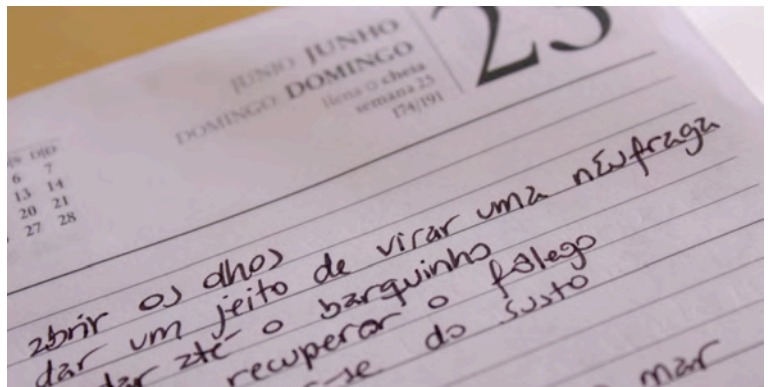 JUNIO JUNHO
DOMINGO DOMINGO
llena O cheia
semana 25
174/191
23
D|D
6 7
13 14
20 21
27 28
abrir os olhos
dar um jeito de virar uma náufraga
até o barquinho
recuperar o fôlego
do susto
mar